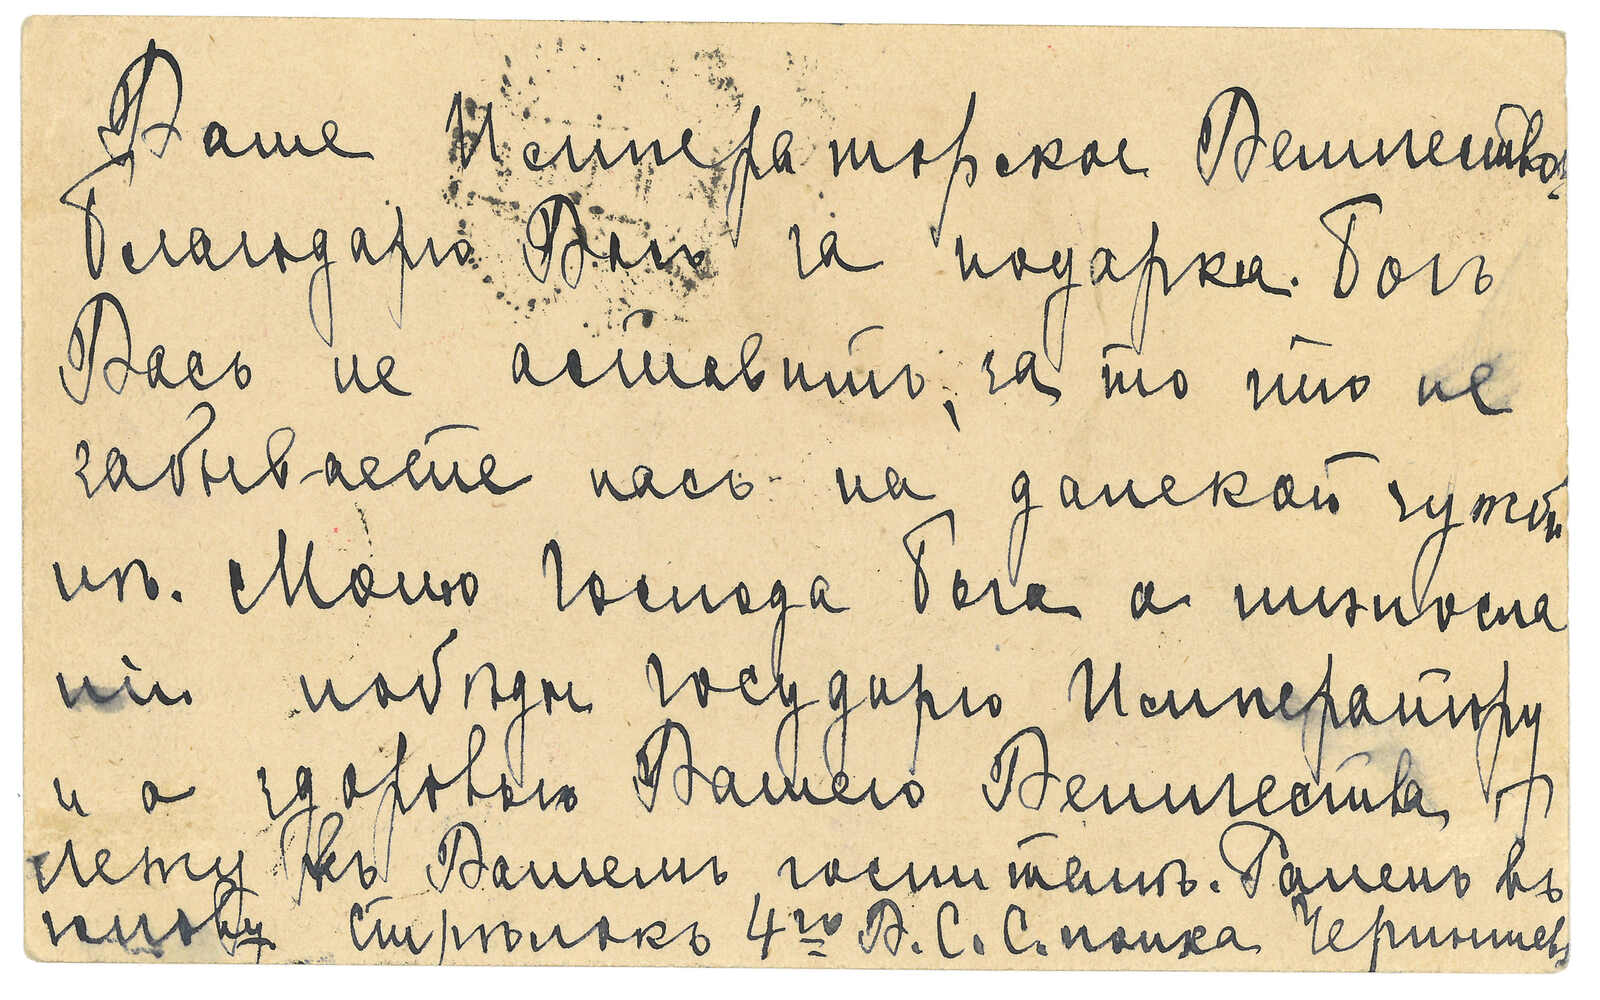 Ваше Императорское Величество,
благодарю Васъ за подарка. Богъ
Васъ не оставитъ, за то что не
забываете насъ на далекой чужби
нѣ. Молю Господа Бога о ниспосла
нiи побѣды Государю Императору
и о здоровьи Вашего Величества
лежу въ Вашемъ госпиталѣ. Раненъ въ
голову Стрѣлокъ 4го В.С.С. полка Чернышев